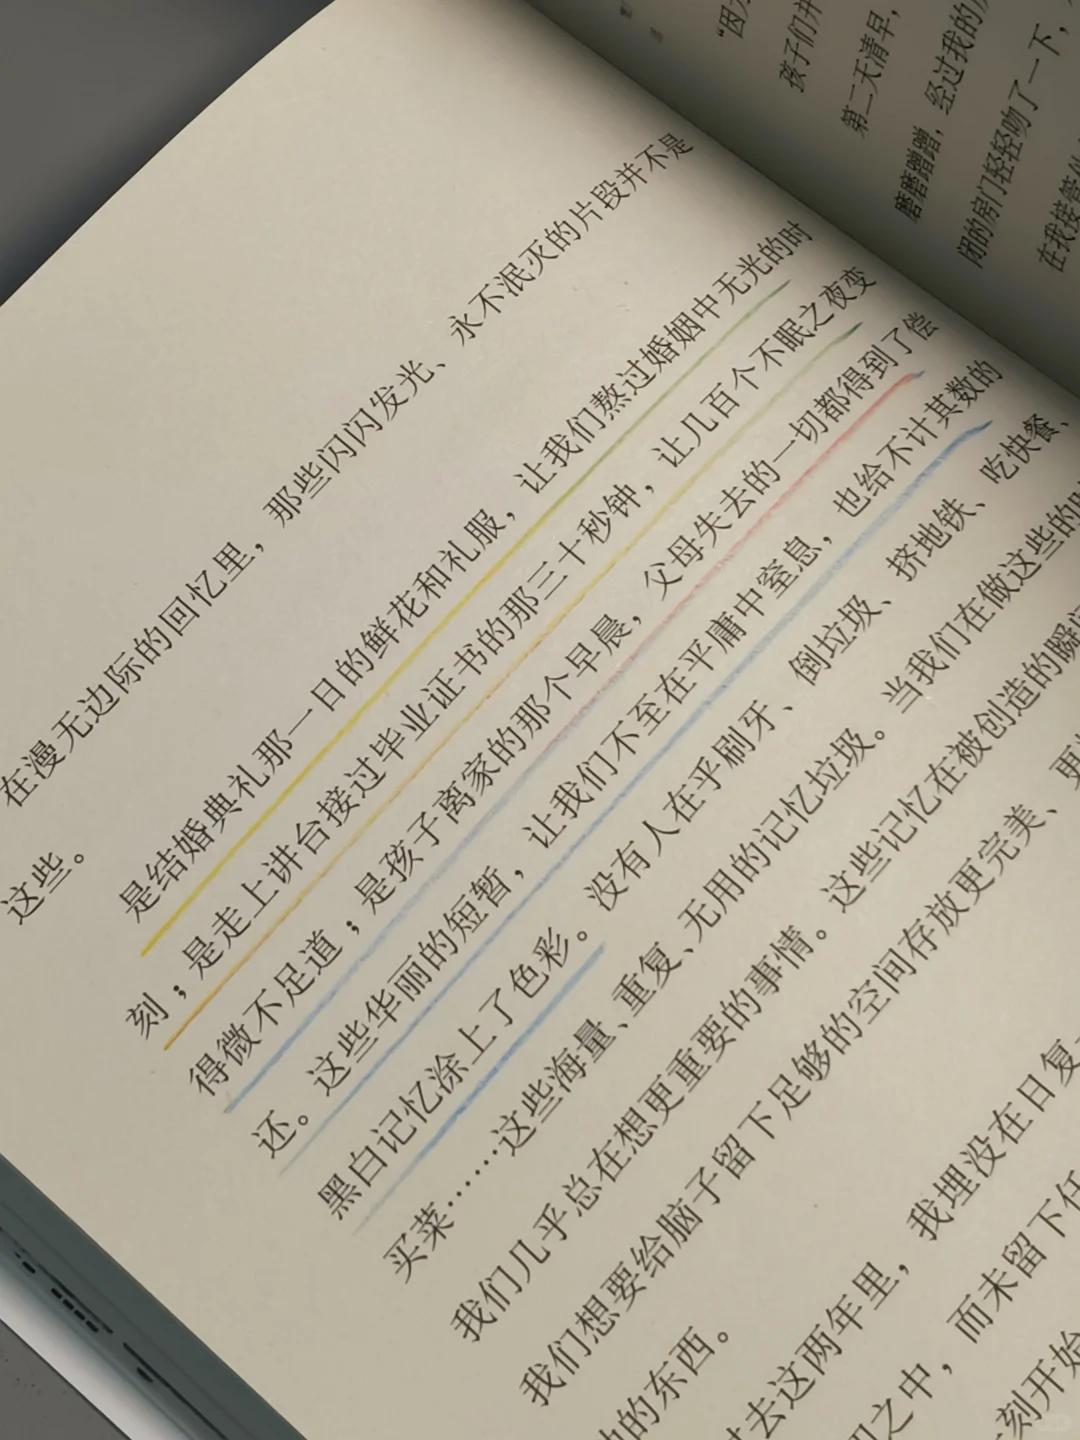 在漫无边际的回忆里，那些闪闪发光、永不泯灭的片段并不是
这些。
是结婚典礼那一日的鲜花和礼服，让我们熬过婚姻中无光的时
刻；是走上讲台接过毕业证书的那三十秒钟，让几百个不眠之夜变
得微不足道；是孩子离家的那个早晨，父母失去的一切都得到了偿
还。这些华丽的短暂，让我们不至在平庸中窒息，也给不计其数的
黑白记忆涂上了色彩。没有人在乎刷牙、倒垃圾、挤地铁、吃快餐、
买菜……这些海量、重复、无用的记忆垃圾。当我们在做这些的
我们几乎总在想更重要的事情。这些记忆在被创造的瞬间
我们想要给脑子留下足够的空间存放更完美、更
的东西。
过去这两年里，我埋没在日复
之中，而未留下任
刻开始
“因
孩子们并
第二天清早，
磨磨蹭蹭，经过我的
闭的房门轻轻吻了一下，
在我接管